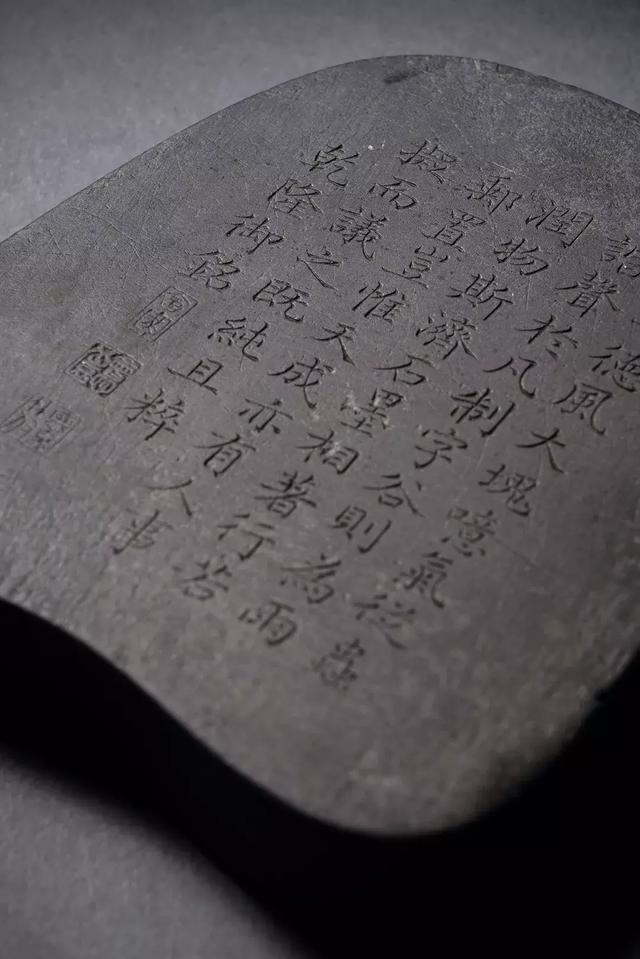 德風大塊噫氣從蟲
諧聲於凡制字谷則為雨
潤物斯濟石墨相著行若
郵置豈惟天成亦有人事
擬而議之既純且粹
乾隆御銘